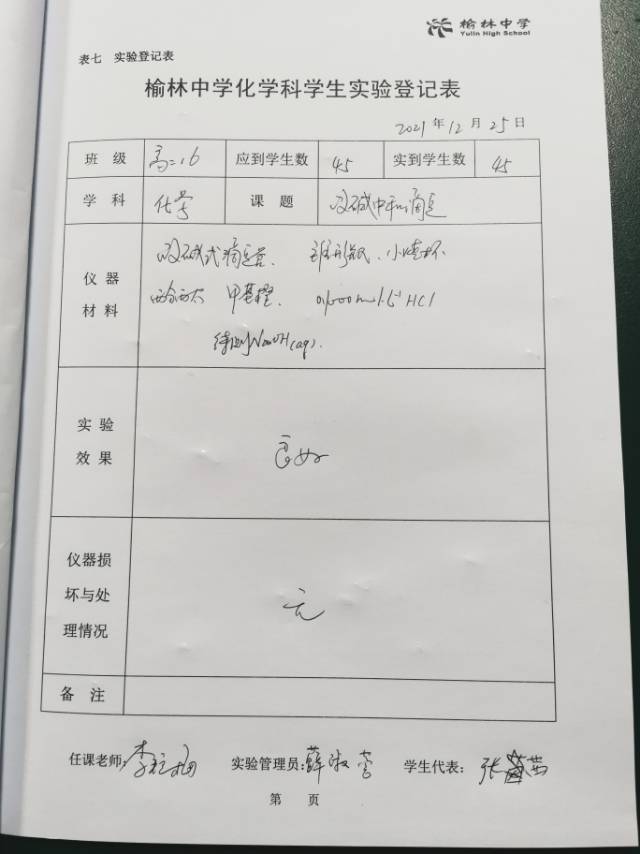 榆林中学
Yulin High School
表七 实验登记表
榆林中学化学科学生实验登记表
2021 年 12 月 25 日
班 级 高二.16 应到学生数 45 实到学生数 45
学 科 化学 课 题 酸碱中和滴定
仪 器
材 料
酸碱式滴定管、 锥形瓶、小烧杯
酚酞 甲基橙、 0.1000mol·L⁻¹ HCl
待测NaOH(aq).
实 验
效 果
良好
仪器损
坏与处
理情况
无
备 注
任课老师: 李 实验管理员: 薛淑 学生代表: 张 茜
第 页